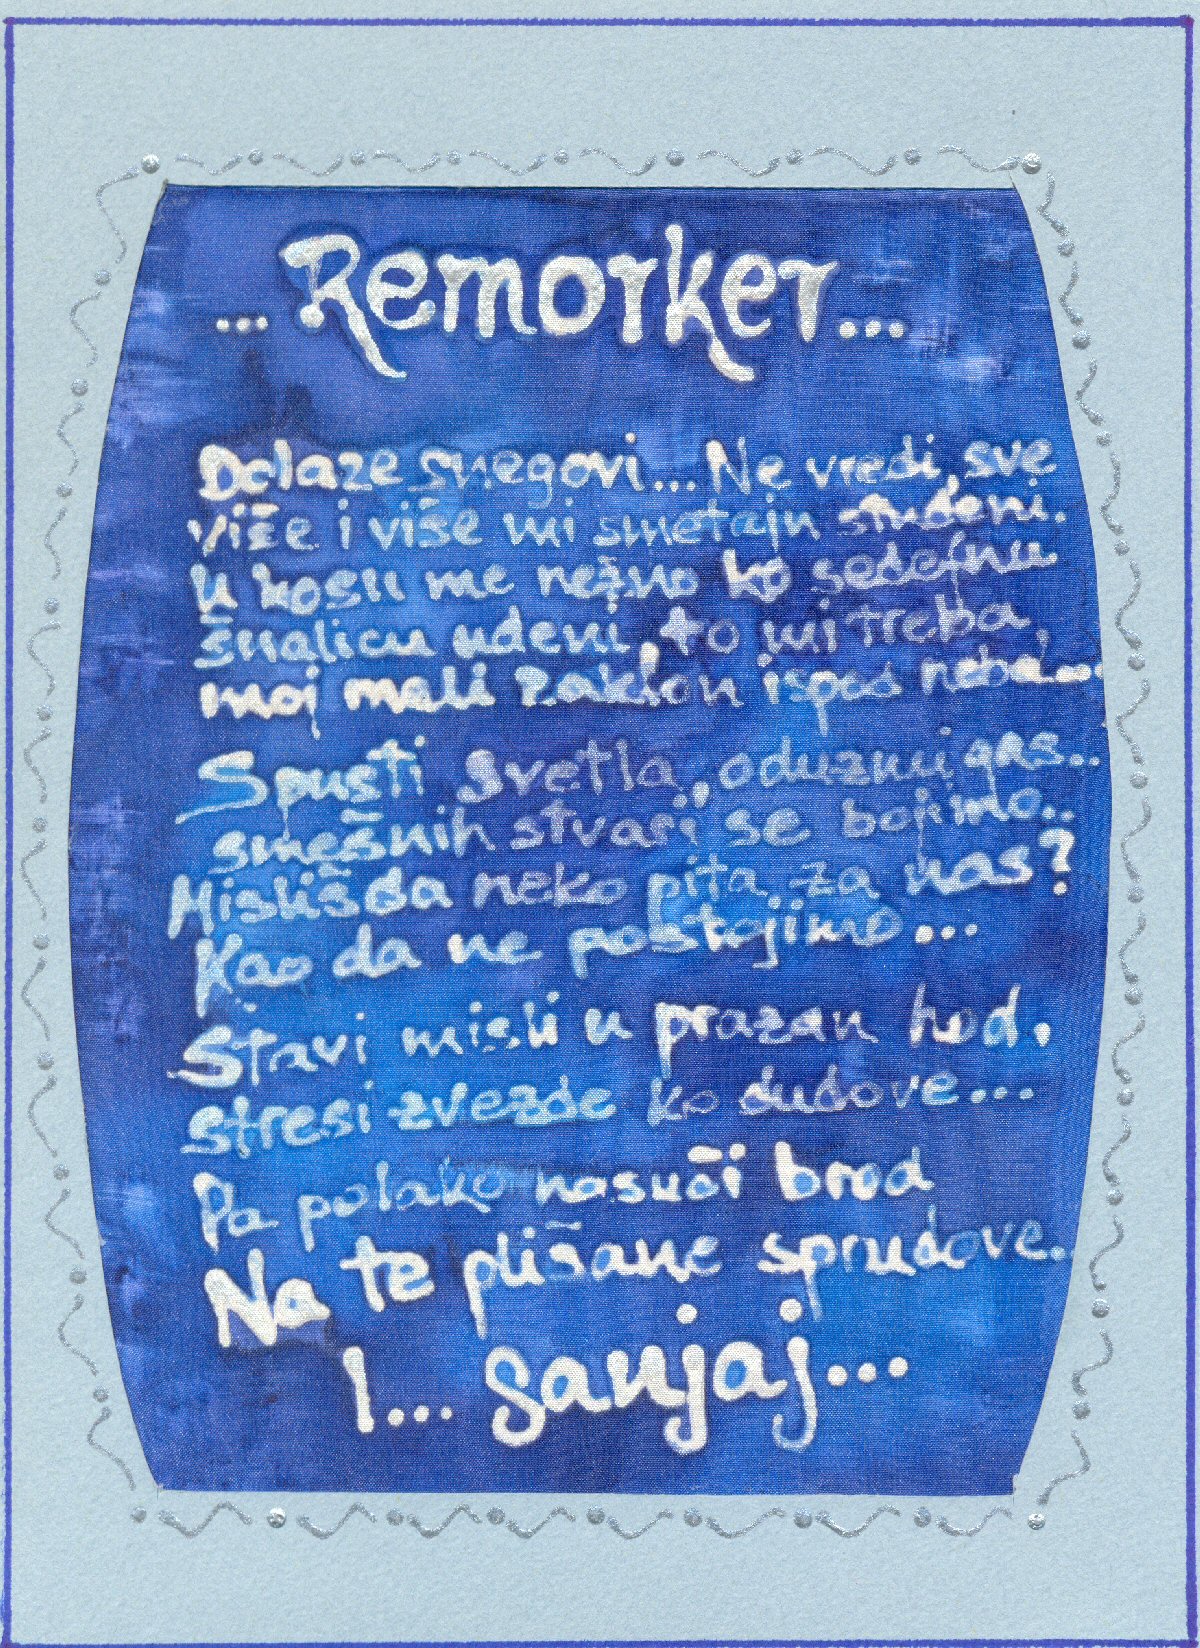 ... Remorker...
Dolaze snegovi... Ne vredi sve
više i više mi smetajn studeni.
U kosu me nežno ko sedefnu
šnalicu udeni, to mi treba,
moj mali zaklon ispod neba...
Spusti svetla, oduzmi gas..
smešnih stvari se bojimo..
Misliš da neko pita za nas?
Kao da ne postojimo...
Stavi misli u prazan hod,
stresi zvezde ko dudove...
Pa polako nasuči brod
Na te plišane sprudove..
I... sanjaj...